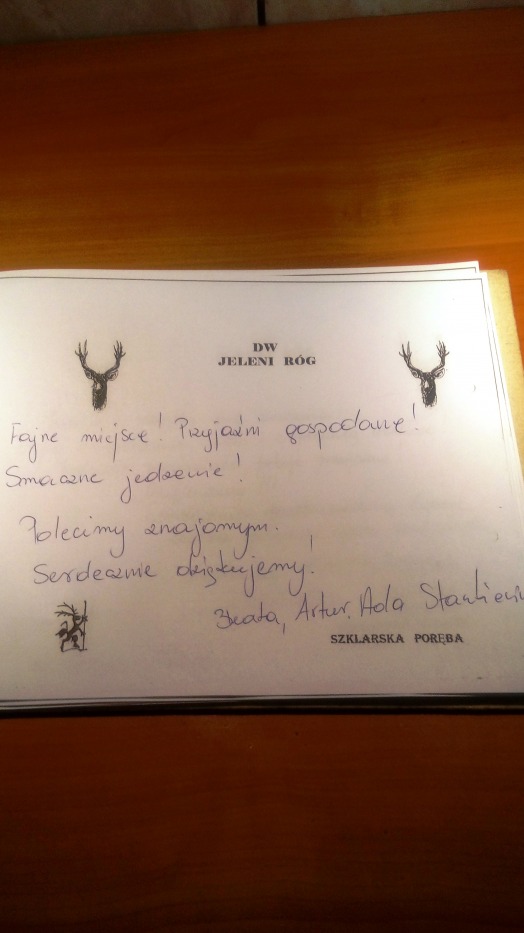 DW
JELENI RÓG
Fajne miejsce! Przyjaźni gospodarze!
Smaczne jedzenie!
Polecimy znajomym.
Serdecznie dziękujemy!
Beata, Artur, Ada
SZKLARSKA PORĘBA